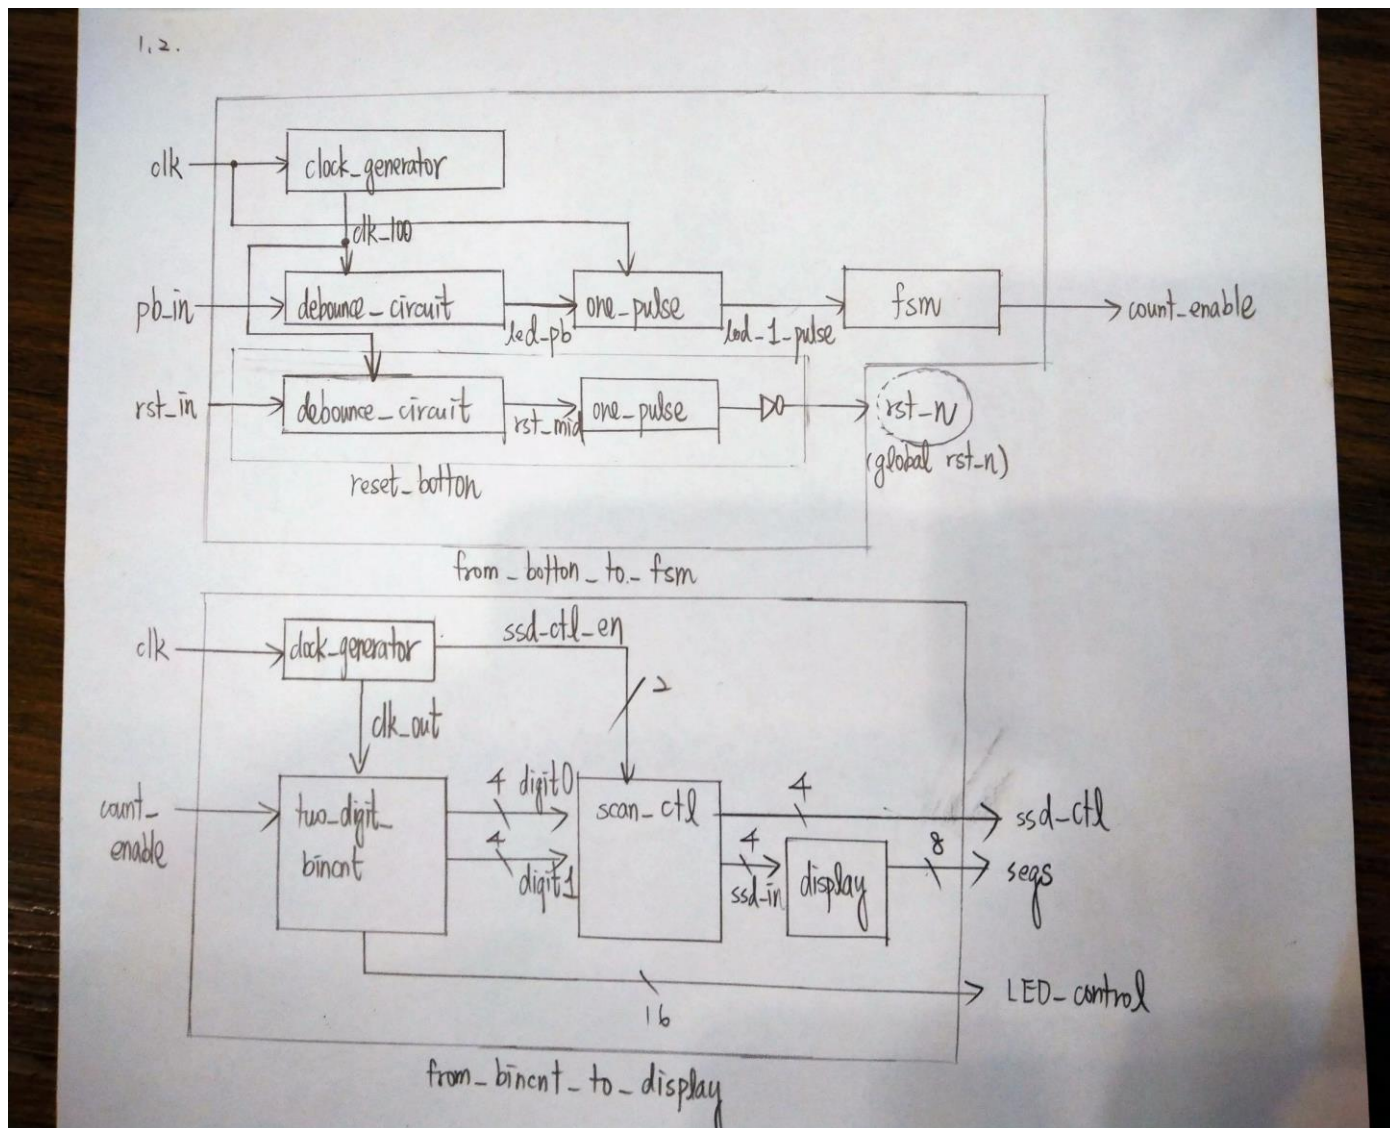 1.2.
clk
clock_generator
clk_100
pb_in
debounce_circuit
led_pb
one_pulse
led_1_pulse
fsm
count_enable
rst_in
debounce_circuit
rst_mid
one_pulse
rst_n
(global rst_n)
reset_botton
from_botton_to_fsm
clk
clock_generator
ssd_ctl_en
2
clk_out
count_
enable
two_digit_
bincnt
4 digit0
4
digit1
scan_ctl
4
ssd_ctl
4
ssd_in
display
8
segs
16
LED_control
from_bincnt_to_display